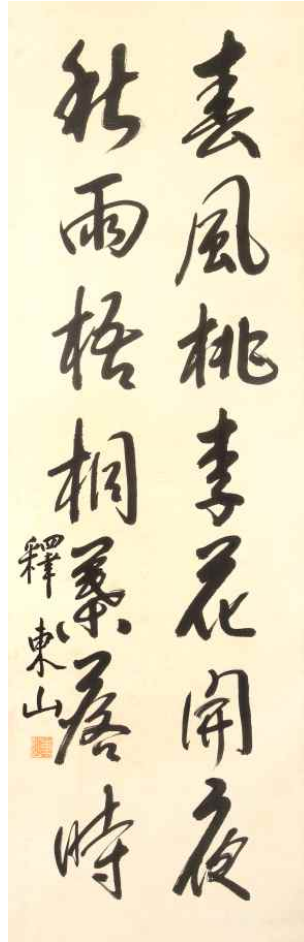 春風桃李花開夜
秋雨梧桐葉落時
釋東山